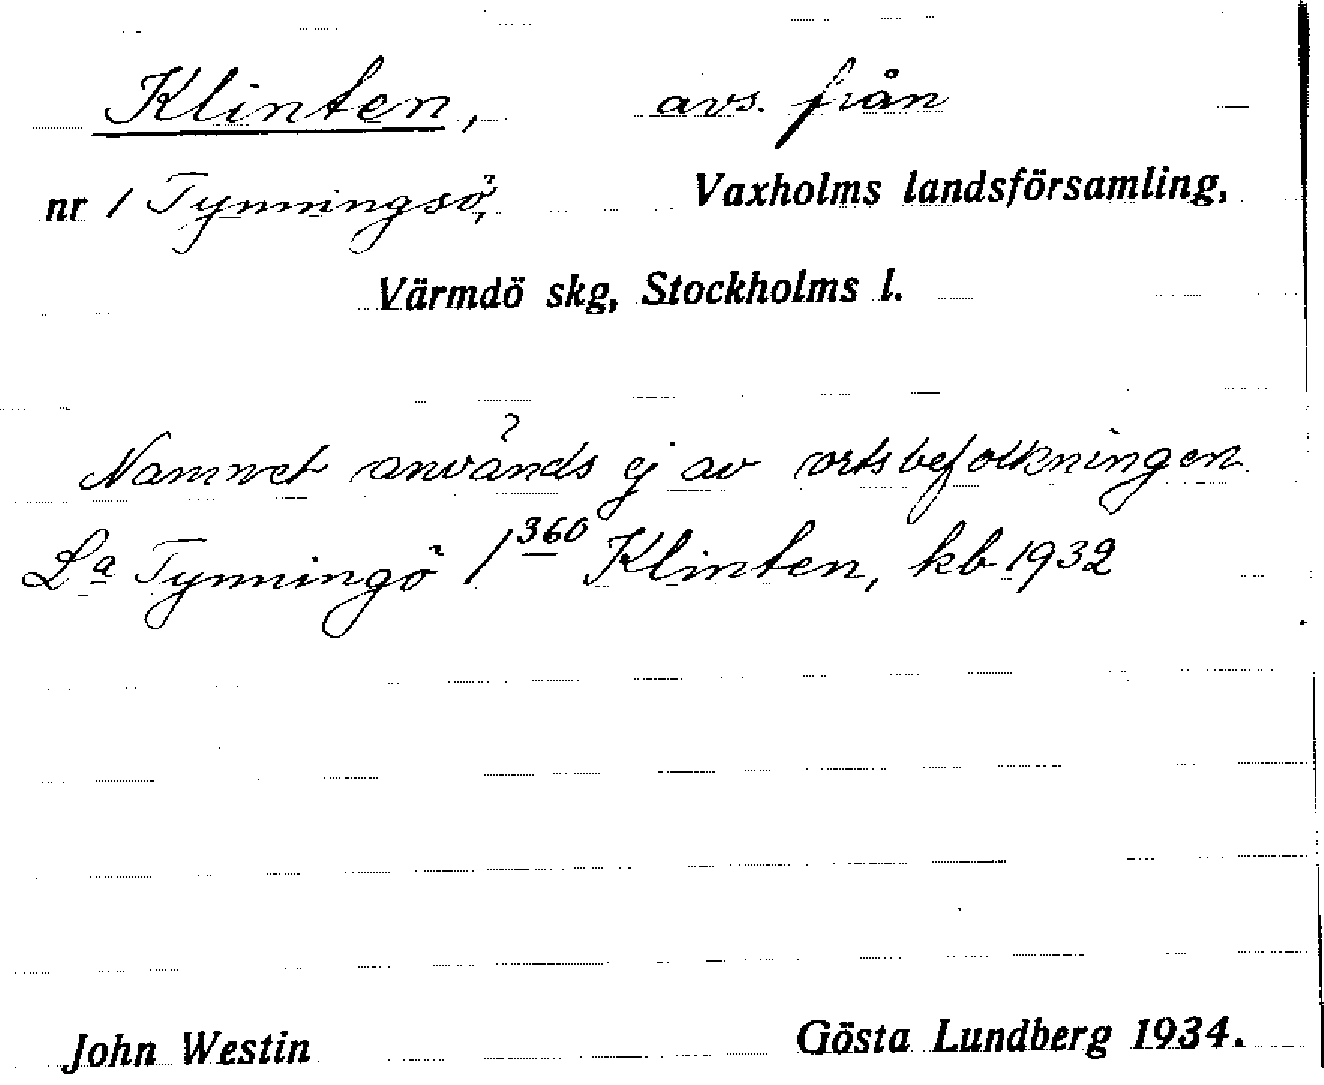 Klinten, avs. från
nr 1 Tynningsö, Vaxholms landsförsamling,
Värmdö skg, Stockholms l.
Namnet används ej av ortsbefolkningen
La Tynningö 1 360 Klinten, kb 1932
John Westin Gösta Lundberg 1934.